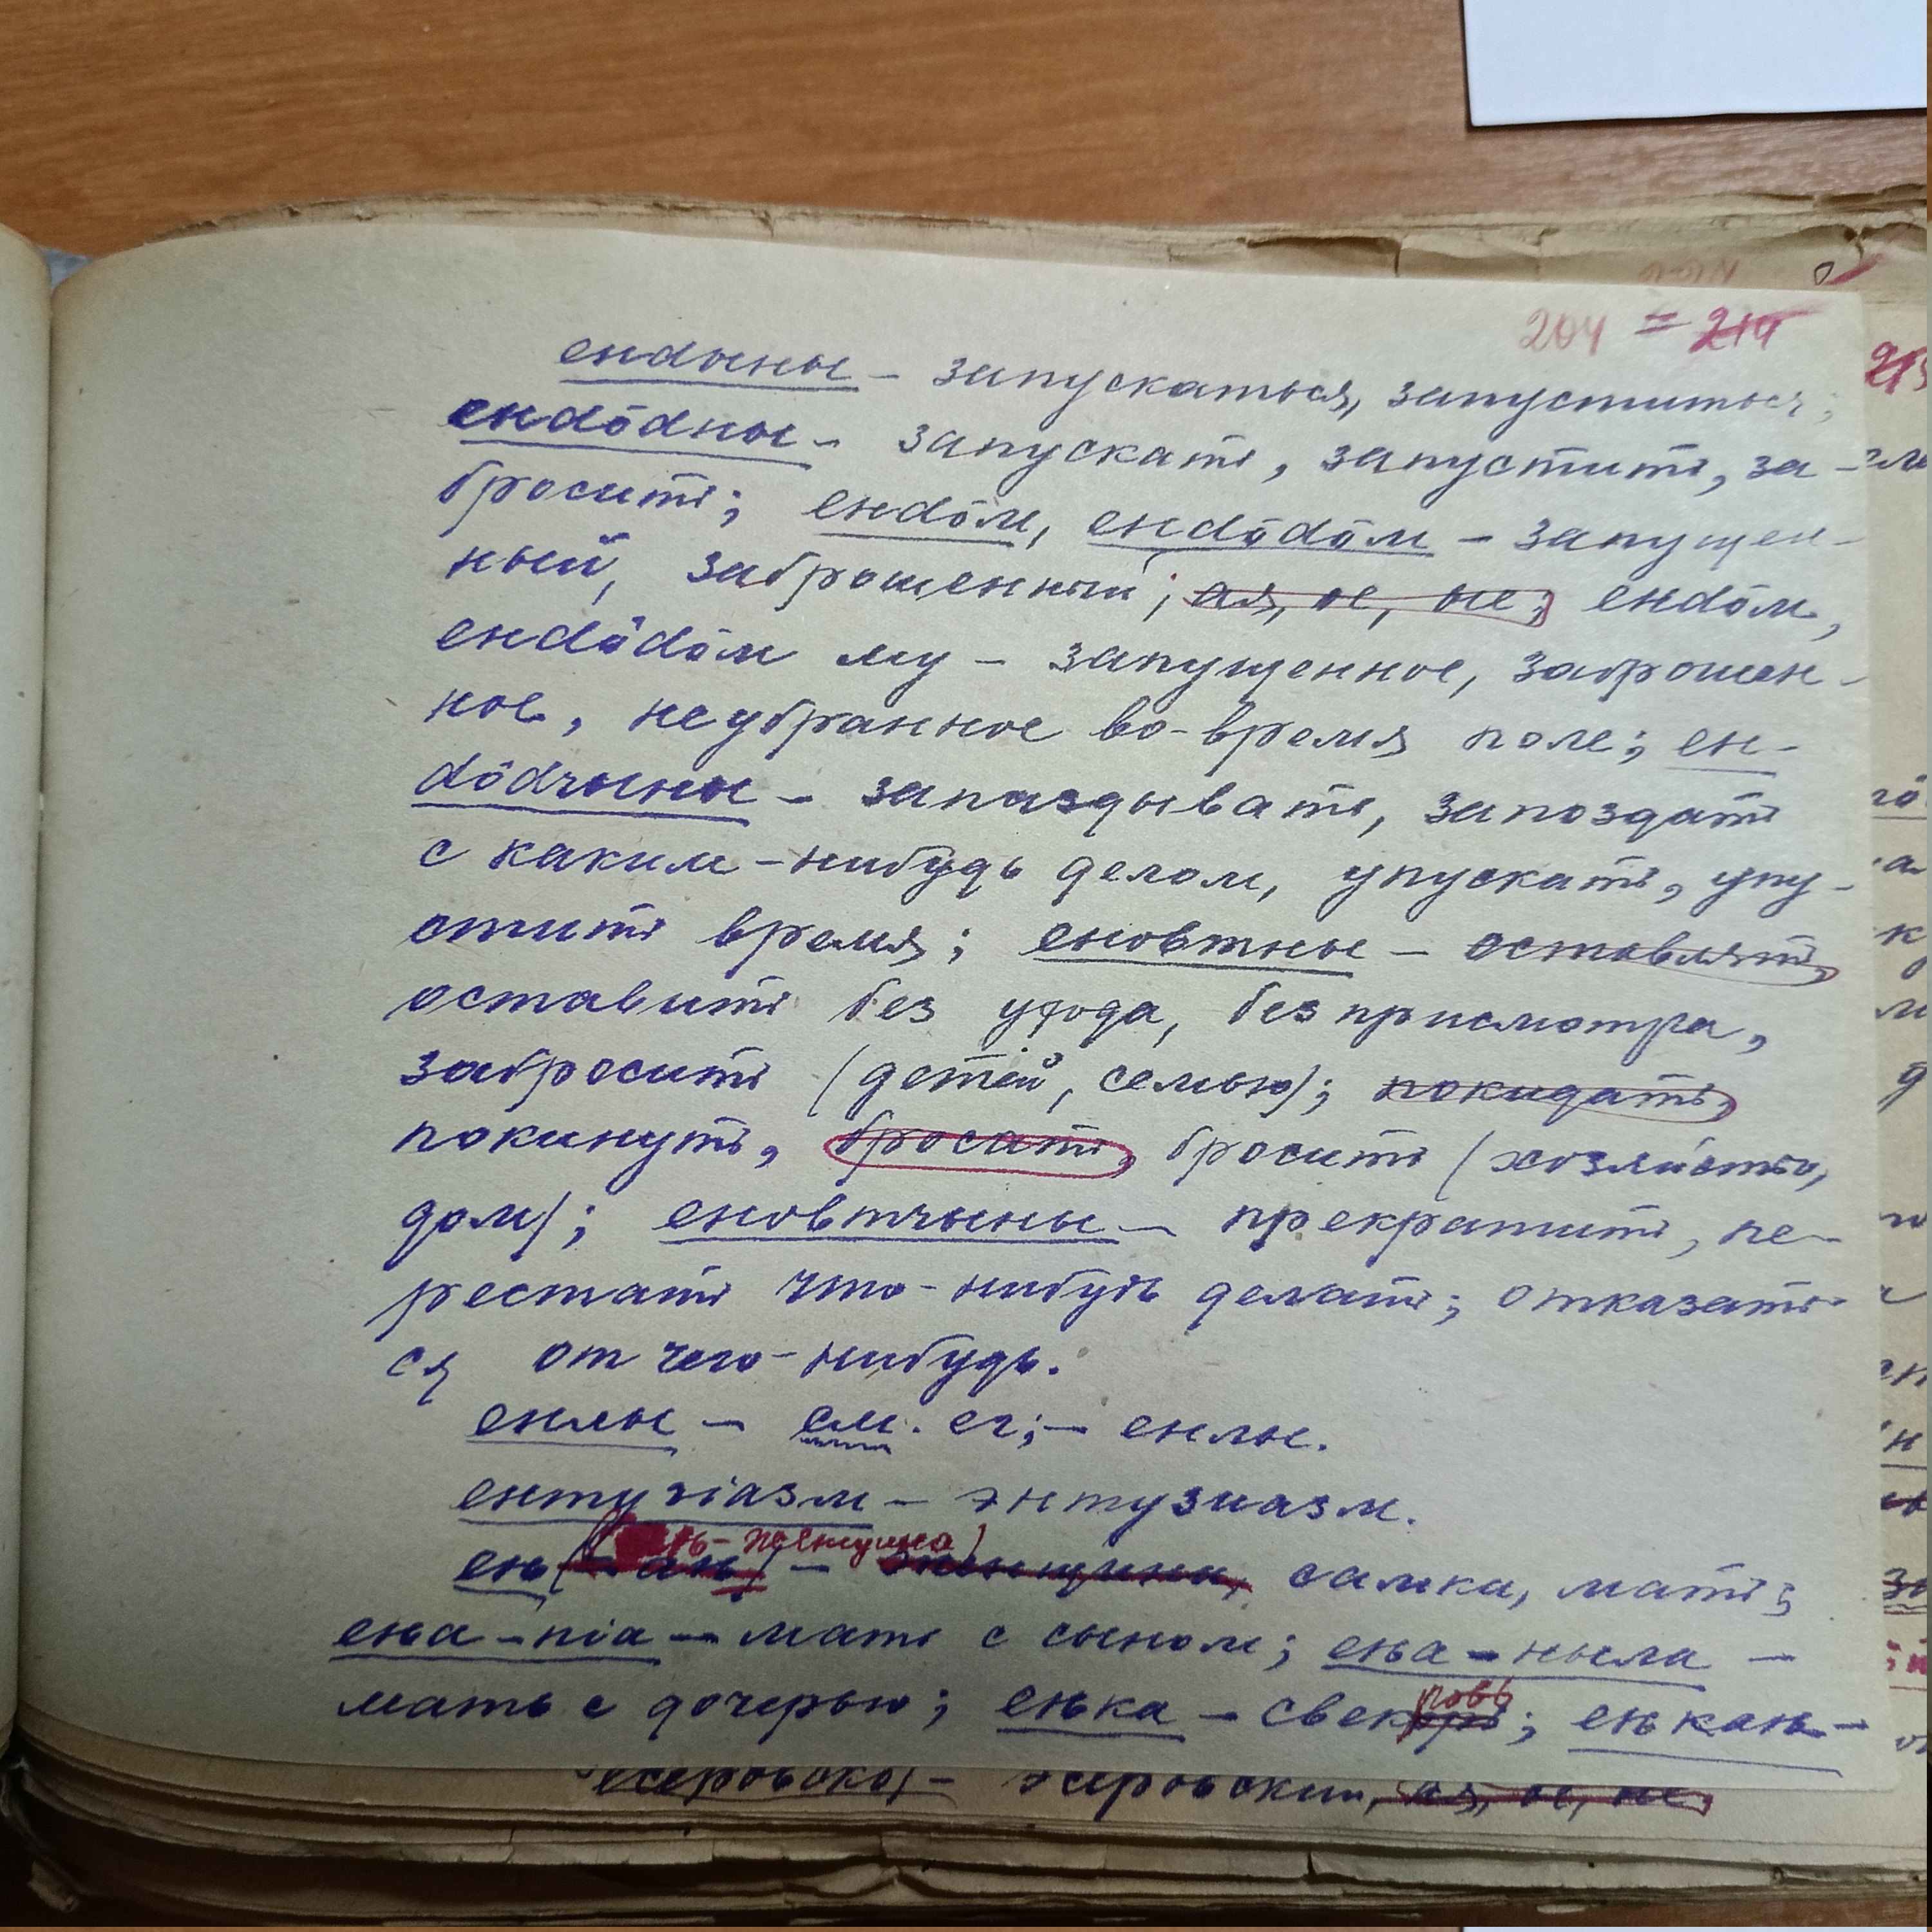 204 = 214
ендыны – запускаться, запуститься;
ендӧдны – запускать, запустить, за-
бросить; ендӧм, ендӧдӧм – запущен-
ный, заброшенный; ая, ое, ые; ендӧм,
ендӧдӧм му – запущенное, заброшен-
ное, неубранное во-время поле; ен-
дӧдчыны – запаздывать, запоздать
с каким-нибудь делом, упускать, упу-
стить время; еновтны – оставлять,
оставить без ухода, без присмотра,
забросить (детей, семью); покидать,
покинуть, бросать, бросить (хозяйство,
дом); еновтчыны – прекратить, пе-
рестать что-нибудь делать; отказать-
ся от чего-нибудь.
енлы – см. ег; – енлы.
ентузіазм – энтузиазм.
нь – женщина)
ень (– ань) – женщина, самка, мать;
еньа-піа – мать с сыном; еньа-ныла –
мать с дочерью; енька – свекровь; енькань –
есеровскӧј – эсеровский, ая, ое, ие;